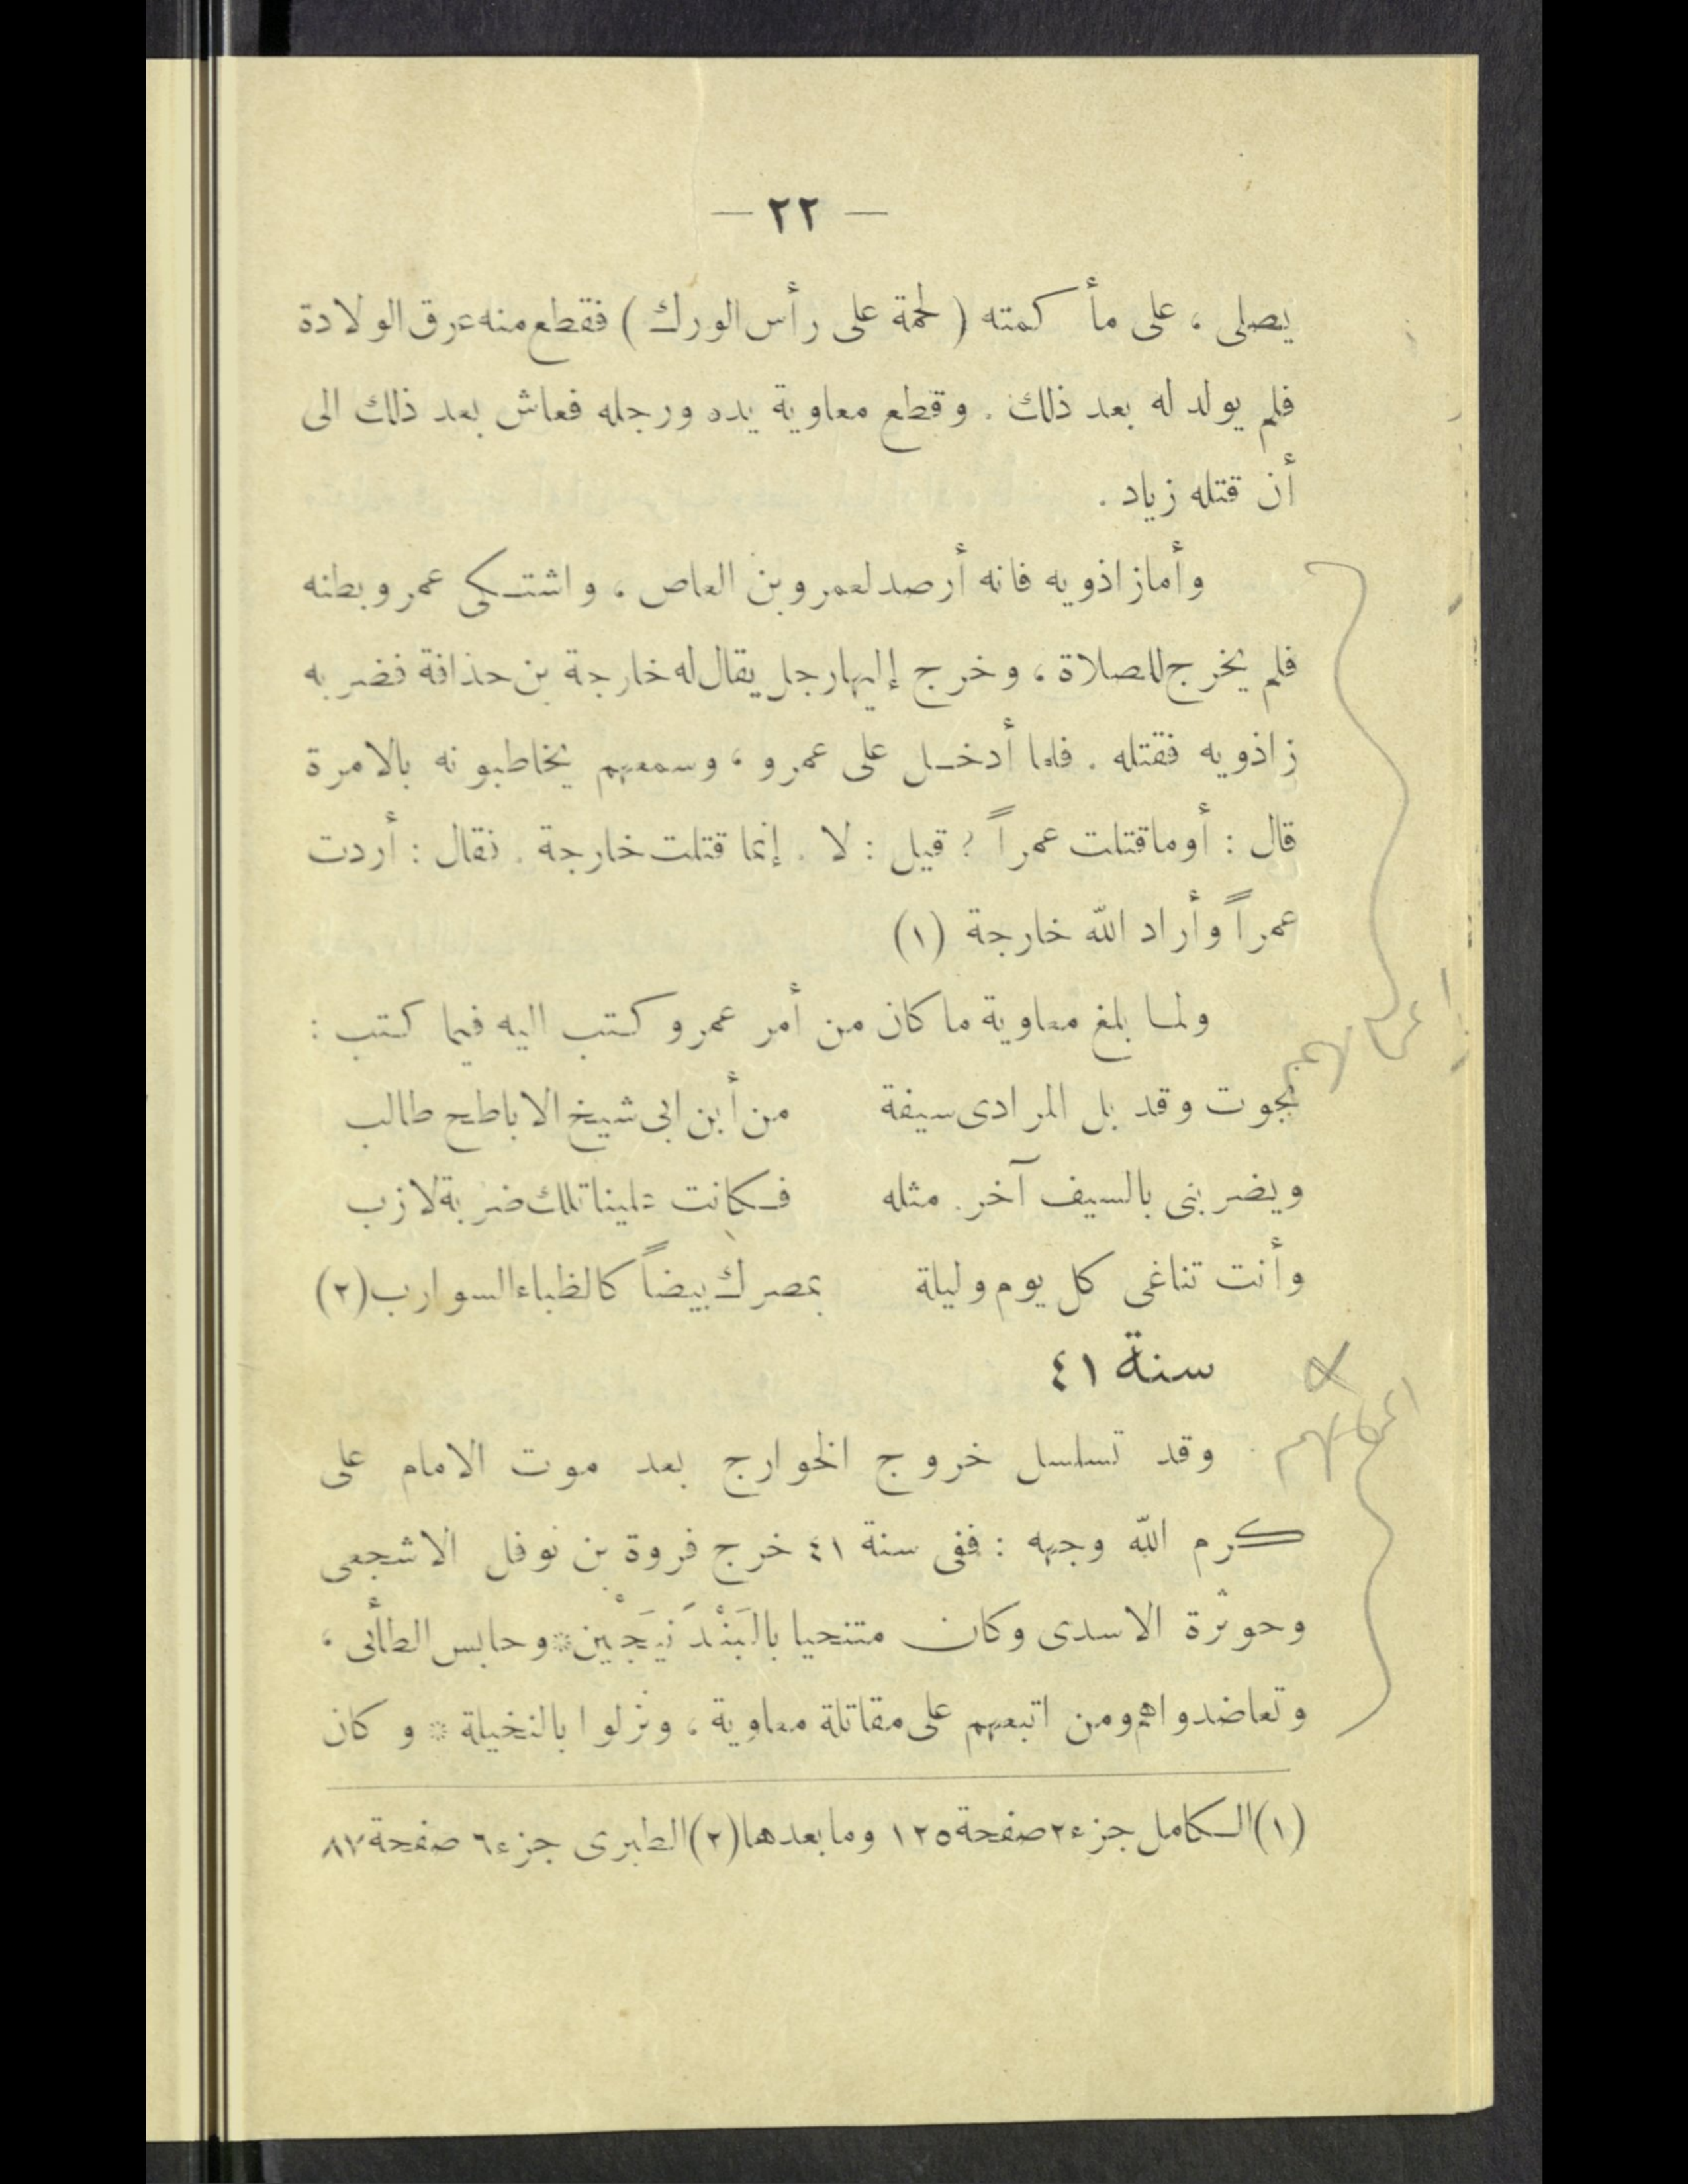 — ٢٢ —
يصلى ، على مأ كمته ( لحمة على رأس الورك ) فقطع منه عرق الولادة
فلم يولد له بعد ذلك . وقطع معاوية يده ورجله فعاش بعد ذلك الى
أن قتله زياد .
وأما زاذويه فانه أرصد لعمرو بن العاص ، واشتكى عمرو بطنه
فلم يخرج للصلاة ، وخرج إليها رجل يقال له خارجة بن حذافة فضربه
زاذويه فقتله . فلما أدخل على عمرو ، وسمعهم يخاطبونه بالامرة
قال : أوما قتلت عمراً ؟ قيل : لا . إنما قتلت خارجة . فقال : أردت
عمراً وأراد الله خارجة (١)
ولما بلغ معاوية ما كان من أمر عمرو كتب اليه فيما كتب :
نجوت وقد بل المرادى سيفة من أبن ابى شيخ الاباطح طالب
ويضربنى بالسيف آخر مثله فكانت علينا تلك ضربة لازب
وأنت تناغى كل يوم وليلة بمصرك بيضاً كالظباء السوارب (٢)
سنة ٤١
وقد تسلسل خروج الخوارج بعد موت الامام على
كرم الله وجهه : ففى سنة ٤١ خرج فروة بن نوفل الاشجعى
وحوثرة الاسدى وكان متنحيا بالبَنْدَنيجَيْن * وحابس الطأبى ،
وتعاضدوا هم ومن اتبعهم على مقاتلة معاوية ، ونزلوا بالنخيلة * وكان
(١) الكامل جزء ٢ صفحة ١٢٥ وما بعدها (٢) الطبرى جزء ٦ صفحة ٨٧